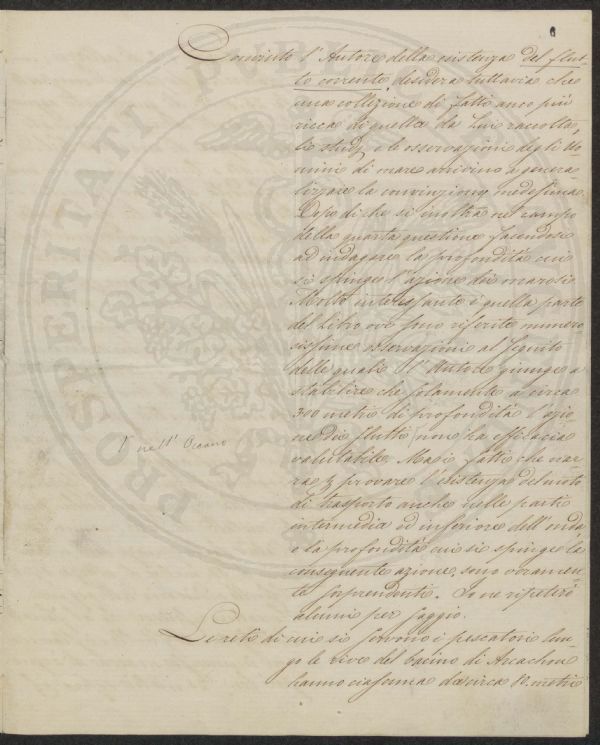 Convinto l'Autore della esistenza del flut-
to corrente, desidera tuttavia che
una collezione di fatti anco più
ricca di quella da Lui raccolta,
lo studj, e le osservazioni degli Uo-
mini di mare arrivino a genera-
lizzare la convinzione medesima.
Dopo di che si inoltra nel campo
della quarta questione facendosi
ad indagare la profondità cui
si spinge l'azione dei marosi.
Molto interessante è quella parte
del Libro ove sono riferite numero-
sissime osservazioni al seguito
delle quali l'Autore giunge a
stabilire che solamente a circa
300 metri di profondità l'azio-
ne dei flutti non ha efficacia
valutabile. Ma i fatti che nar-
ra per provare l'esistenza del moto
di trasporto anche nelle parti
intermedia ed inferiore dell'onda,
e la profondità cui si spinge la
conseguente azione, sono veramen-
te sorprendenti. Io ne ripeterò
alcuni per saggio.
Le reti di cui si servono i pescatori lun-
go le rive del bacino di Arcachon
hanno ciascuna da circa 10. metri
nell'Oceano
PROSPERITATI PUBL